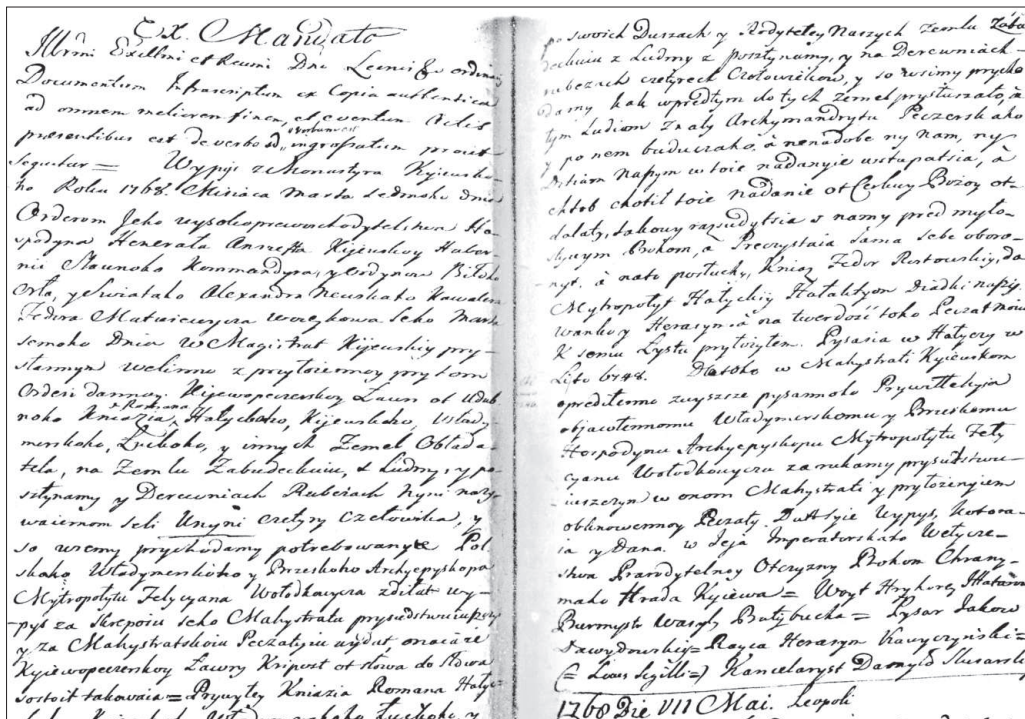 Ex Mandato
Illrmi Exellmi et Reumi Dni Leonis &
Documentum Infrascriptum ex Copia authentica
ad omnem meliorem finem, et eventum Actis
praesentibus est de verbo ad verbum est ingrossatum prout
sequitur = Wypys z Monastyra Kyiewsko-
ho Roku 1768. Misiaca Marta Sedmoho dnia
Orderom Jeho wysokoprewoschodytelstwa Ho-
spodyna Henerala Anszefta Kijewskoy Hubor-
nii Hławnoho Kommandyra, y Ordynow Biłoho
Orła, y Swiataho Alexandra Newskaho Kawalera
Fedora Matwiewycza Woieykowa seho Marta
semoho Dnia w Magistrat Kijewskiy pry-
słannym welinno z pryłożennoy pry tom
Orderi dannoy Kijewopeczerskoy Ławri ot Udil-
noho Kniazia Romana Hałyckoho, Kijewskoho, Wlady-
merskoho, Łuckoho, y innych Zemel Obłada-
tela, na Zemlu Zabudeckuiu, z Ludmy, y po
sztynamy y Derewniach Rubeżach Nyni nazy-
waiemom Seli Unyni czetyry Czełowika, y
so wsemy prychodamy potrebowanyie Pol-
skoho Władymerskoho y Brzeskoho Archyepyskopa
Mytropolyta Felycyana Wołodkowycza zdiłat wy-
pys za Skrepoiu seho Mahystratu prysudstwuiuszczych
y za Mahystratskoiu Peczatyiu wydat onaiaże
Kyjewopeczerskoy Ławry Kripost ot słowa do Słowa
sostoit takowaia = Prywyley Kniazia Romana Hałyc-
po swoich Duszach y Rodyteley Naszych Zemlu Zabu
deckuiu z Ludmy z posztynamy, y na Derewniach
rubeżach czetyrech Czołowikow, y so wsimy prycho
damy kak wpredtym do tych zemel prysłuszało, a
tym Ludiom Znaty Archymandrytu Peczerskoho
y po nem buduczoho, a nenadobe ny nam, ny
Ditiam Naszym w toie nadanyie wstupatsia, a
chtob chotił toie nadanie ot Cerkwy Bożoy ot-
dalaty, takowy rassudytsia s namy pred myło-
stywym Bohom, a Preczystaia sama sebe oboro-
nyt. a nato posłuchy, Kniaz Fedor Rostowskiy, da
Mytropolyt Hałyckiy Hałaktyon Diadki naszy.
Iwanko y Herasym a na twerdość toho Peczat moiu
K semu Lystu pryłożyłem. Pysasia w Hałyczy w
Lito 6748. Dla toho w Mahystrati Kyiewskom
oprediłenno zwyszsze pysannoho Prywilehyia
obiawłennomu Władymerskomu y Brzeskomu
Hospodynu Archyepyskopu Mytropolytu Fely
cyanu Wołodkowyczu za rukamy prysudstwu-
iuszczych w onom Mahystrati y pryłożenyiem
obiknowennoy Peczaty. Dał syie Wypys, kotora-
ia y Dana. w Jeja Imperatorskaho Wełycze-
stwa Prarodytelnoy Otczyzny Bohom Chrany-
maho Hrada Kyiewa = Woyt Hryhorey
Burmystr Wasyly Bałybucha = Pysar Jakow
Dawydowskiy = Rayca Herasym Kawyczyński =
(= Locus Sigilli =) Kancelaryst Danyło Slusarski
1768 Die VII Mai. Leopoli